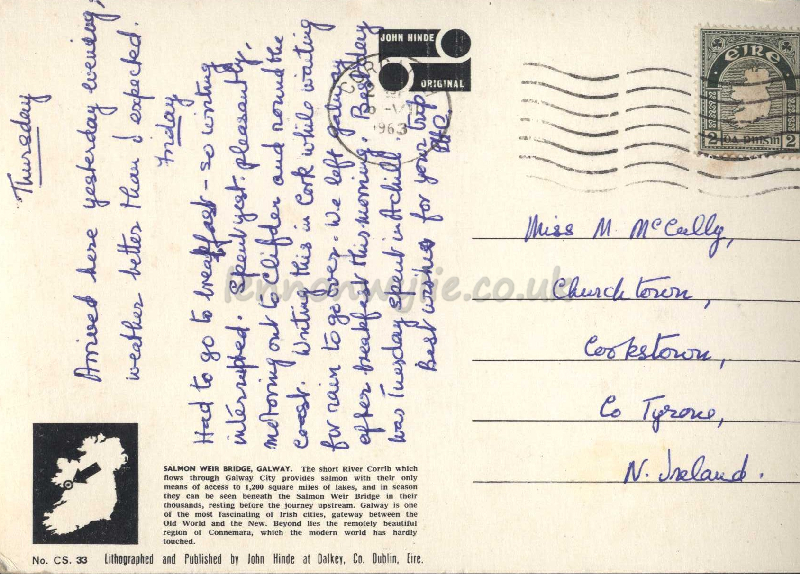 Thursday
Arrived here yesterday evening,
weather better than I expected.
Friday
Had to go to breakfast - so writing
interrupted. Spent yest. pleasantly,
motoring out to Clifden and round the
coast. Writing this in Cork while waiting
for rain to go over. We left Galway
after breakfast this morning. Best day
was Tuesday spent in Achill.
Best wishes for your trip
JOHN HINDE
ORIGINAL
1963
EIRE
2 2
Miss M. McCully,
Churchtown,
Cookstown,
Co Tyrone,
N. Ireland.
lennonwylie.co.uk
SALMON WEIR BRIDGE, GALWAY. The short River Corrib which
flows through Galway City provides salmon with their only
means of access to 1,200 square miles of lakes, and in season
they can be seen beneath the Salmon Weir Bridge in their
thousands, resting before the journey upstream. Galway is one
of the most fascinating of Irish cities, gateway between the
Old World and the New. Beyond lies the remotely beautiful
region of Connemara, which the modern world has hardly
touched.
No. CS. 33 Lithographed and Published by John Hinde at Dalkey, Co. Dublin, Eire.